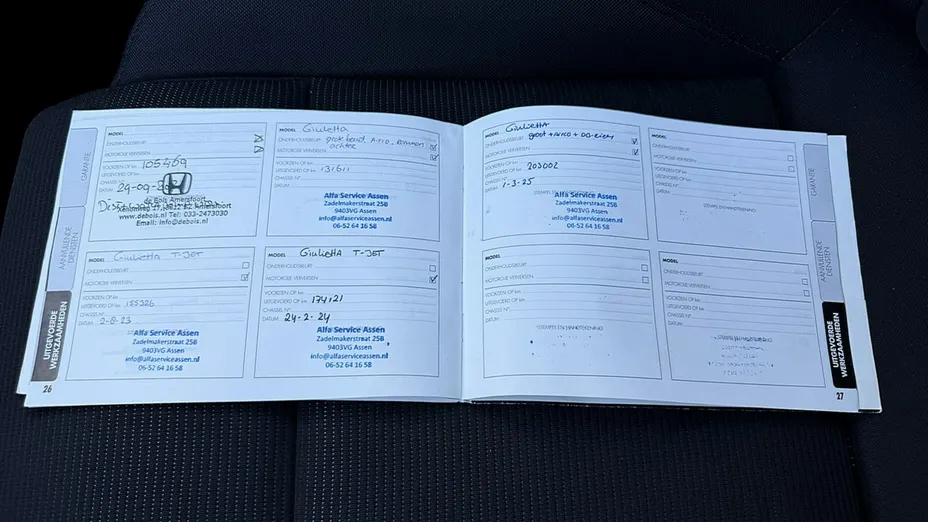 GARANTIE
AANVULLENDE
DIENSTEN
UITGEVOERDE
WERKZAAMHEDEN
26
MODEL
ONDERHOUDSBEURT
MOTOROLIE VERVERSEN
VOORZIEN OP km 105469
UITGEVOERD OP km
CHASSIS N°
DATUM 29-09-
de Bois Amersfoort
www.debois.nl Tel: 033-2473030
Email: info@debois.nl
MODEL Giulietta
ONDERHOUDSBEURT
achter
MOTOROLIE VERVERSEN
VOORZIEN OP km
UITGEVOERD OP km 131611
CHASSIS N°
DATUM
Alfa Service Assen
Zadelmakerstraat 25B
9403VG Assen
info@alfaserviceassen.nl
06-52 64 16 58
MODEL Giulietta T-JET
ONDERHOUDSBEURT
MOTOROLIE VERVERSEN
VOORZIEN OP km
UITGEVOERD OP km 155326
CHASSIS N°
DATUM 2-8-23
Alfa Service Assen
Zadelmakerstraat 25B
9403VG Assen
info@alfaserviceassen.nl
06-52 64 16 58
MODEL Giulietta T-JET
ONDERHOUDSBEURT
MOTOROLIE VERVERSEN
VOORZIEN OP km
UITGEVOERD OP km 174121
CHASSIS N°
DATUM 24-2-24
Alfa Service Assen
Zadelmakerstraat 25B
9403VG Assen
info@alfaserviceassen.nl
06-52 64 16 58
MODEL Giulietta
ONDERHOUDSBEURT groot + AIRCO + DO-Riem
MOTOROLIE VERVERSEN
VOORZIEN OP km
UITGEVOERD OP km 203002
CHASSIS N°
DATUM 1-3-25
STEMPEL EN HANDTEKENING
Alfa Service Assen
Zadelmakerstraat 25B
9403VG Assen
info@alfaserviceassen.nl
06-52 64 16 58
MODEL
ONDERHOUDSBEURT
MOTOROLIE VERVERSEN
VOORZIEN OP km
UITGEVOERD OP km
CHASSIS N°
DATUM
STEMPEL EN HANDTEKENING
MODEL
ONDERHOUDSBEURT
MOTOROLIE VERVERSEN
VOORZIEN OP km
UITGEVOERD OP km
CHASSIS N°
DATUM
STEMPEL EN HANDTEKENING
MODEL
ONDERHOUDSBEURT
MOTOROLIE VERVERSEN
VOORZIEN OP km
UITGEVOERD OP km
CHASSIS N°
DATUM
STEMPEL EN HANDTEKENING
GARANTIE
AANVULLENDE
DIENSTEN
UITGEVOERDE
WERKZAAMHEDEN
27